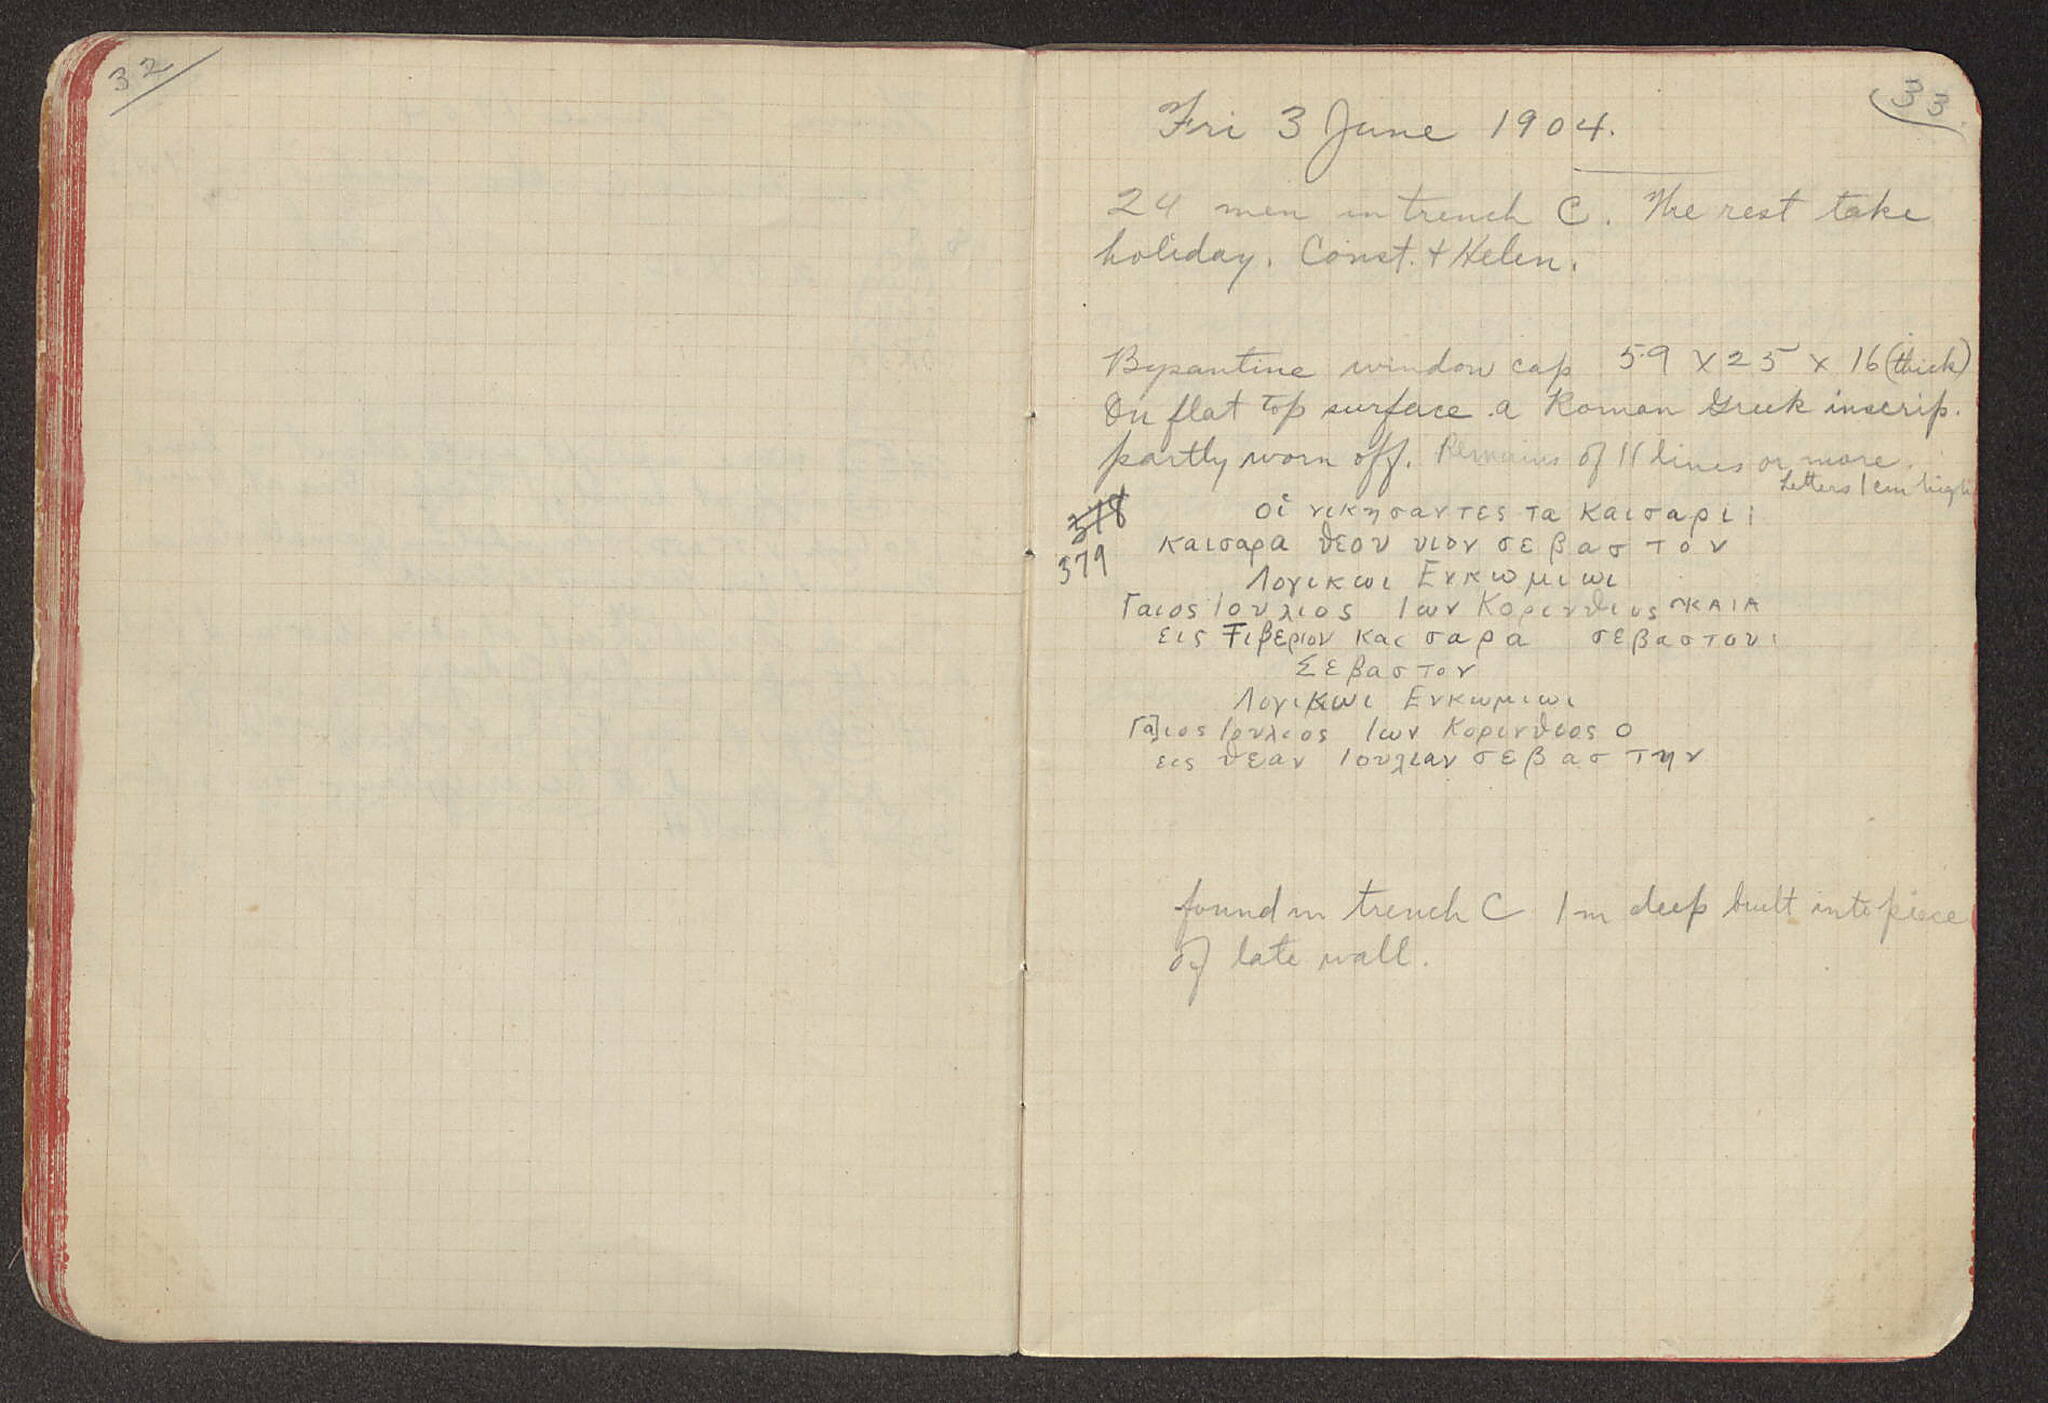 32
33
Fri 3 June 1904.
24 men in trench C. The rest take
holiday. Const. + Helen.
Byzantine window cap 59 x 25 x 16 (thick)
On flat top surface a Roman Greek inscrip.
partly worn off. Remains of 11 lines or more.
Letters 1 cm high
378
379
οἱ νικησαντες τα Καισαρι
Καισαρα θεου υιον σεβαστον
Λογικωι Ενκωμιωι
Γαιος Ιουλιος Ιων Κορινθιος ΚΑΙΑ
εις Τιβεριον Καισαρα σεβαστου
Σεβαστον
Λογικωι Ενκωμιωι
Γα]ιος Ιουλιος Ιων Κορινθιος Ο
εις θεαν Ιουλιαν σεβαστην
found in trench C 1 m deep built into piece
of late wall.